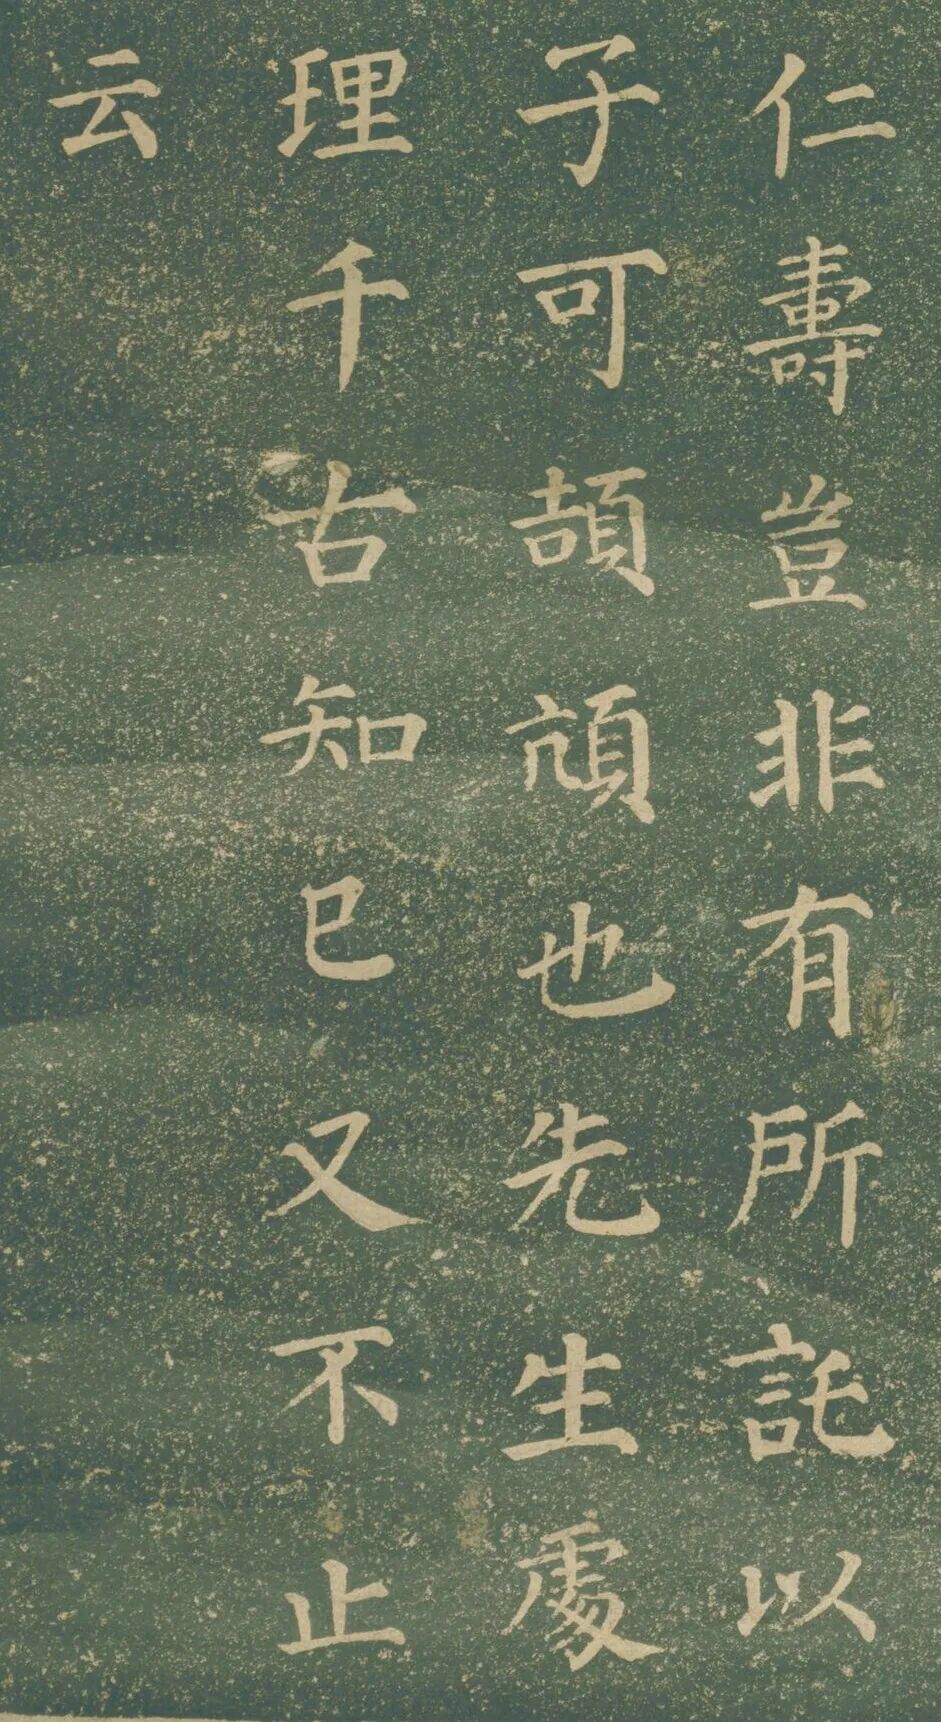 仁壽豈非有所託以
子可頡頏也先生處
理千古知已又不止
云